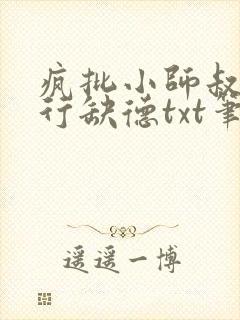 疯批小師叔
行缺德txt筆
遥遥一博